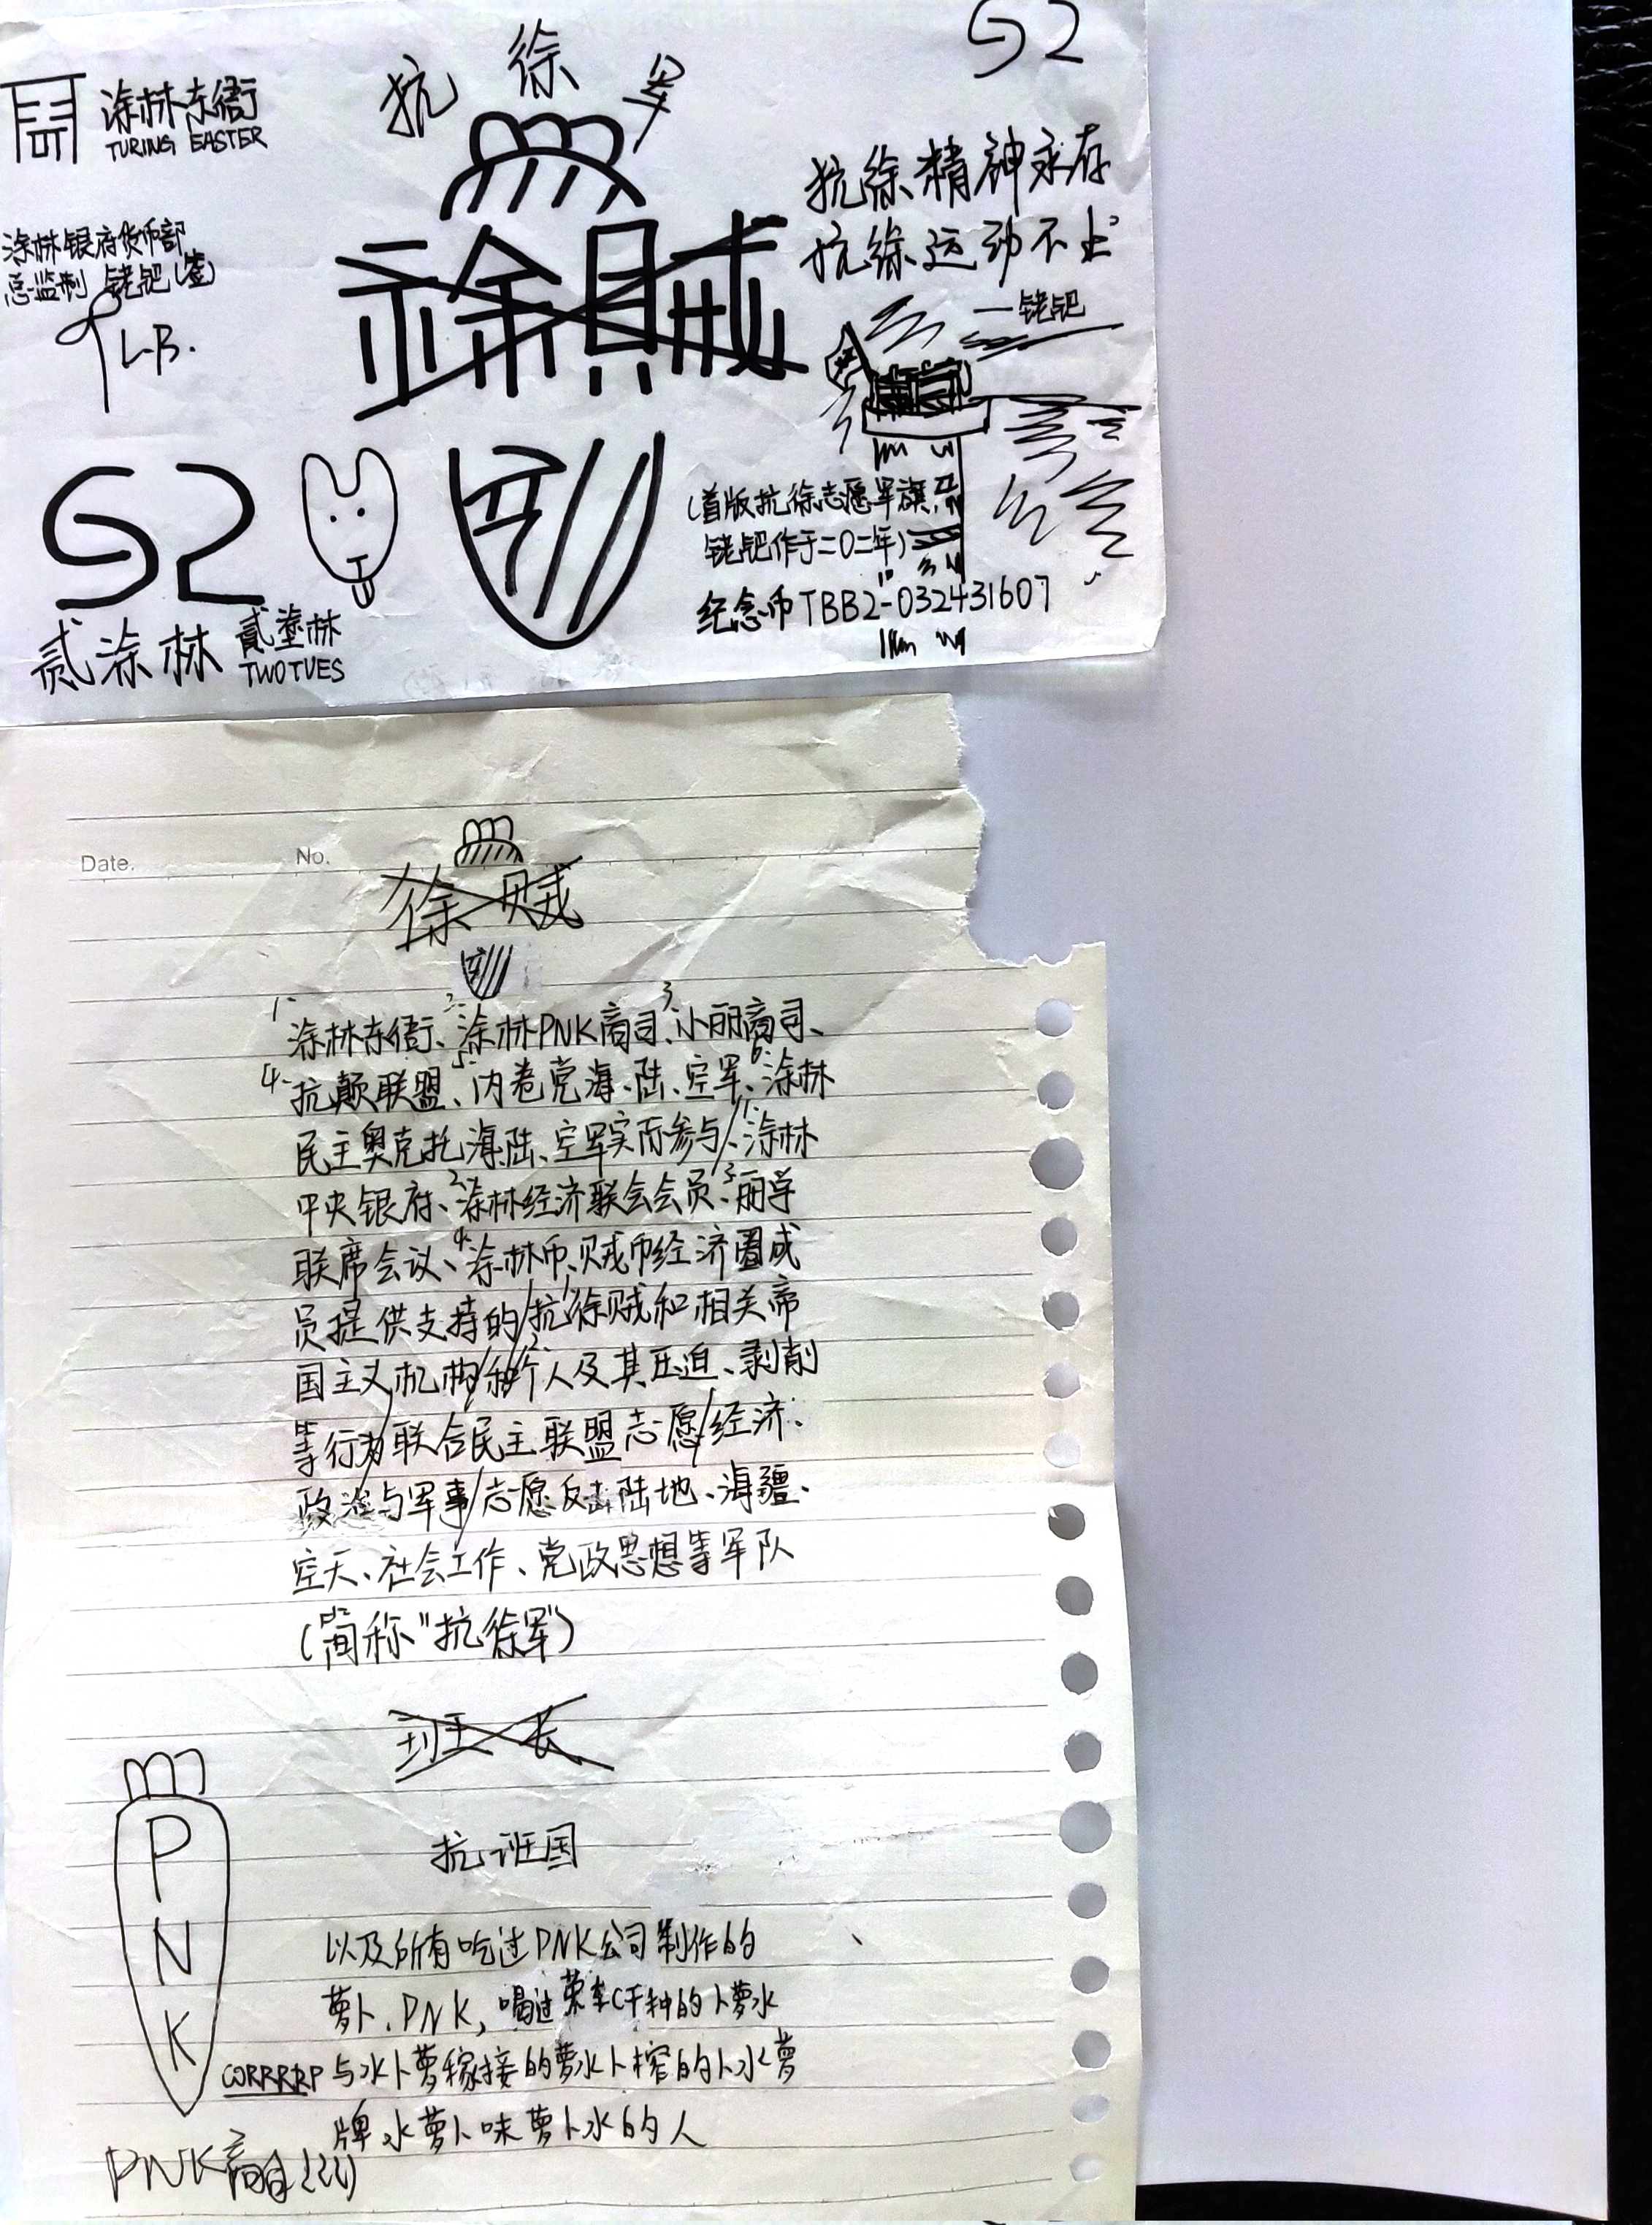 涂林东衙
TURING EASTER
抗徐军
S2
涂林银府货币部
总监制 铑钯(签)
L.B.
徐賊
抗徐精神永存
抗徐运动不止
—铑钯
S2
贰涂林
貳塗林
TWO TUES
(首版抗徐志愿军旗,
铑钯作于二〇二年)
纪念币TBB2-032431607
Date. No.
徐贼
1. 涂林东衙、2. 涂林PNK商司、3. 小丽商司、
4. 抗颠联盟、5. 内卷党海、陆、空军、6. 涂林
民主奥克托海陆、空军实际参与/、1. 涂林
中央银府、2. 涂林经济联会会员、3. 丽学
联席会议、4. 涂林币、贼币经济圈成
员提供支持的/抗1.徐贼和相关帝
国主义机构/和2.个人及其压迫、剥削
等行为/联合民主联盟志愿/经济、
政治与军事/志愿反击陆地、海疆、
空天、社会工作、党政思想等军队
(简称"抗徐军")
班长
抗班国
P
N
K
以及所有吃过PNK公司制作的
萝卜、PNK,喝过荣车C干种的卜萝水
CORRRRP 与水卜萝稼接的萝水卜榨的卜水萝
牌水萝卜味萝卜水的人
PNK商司